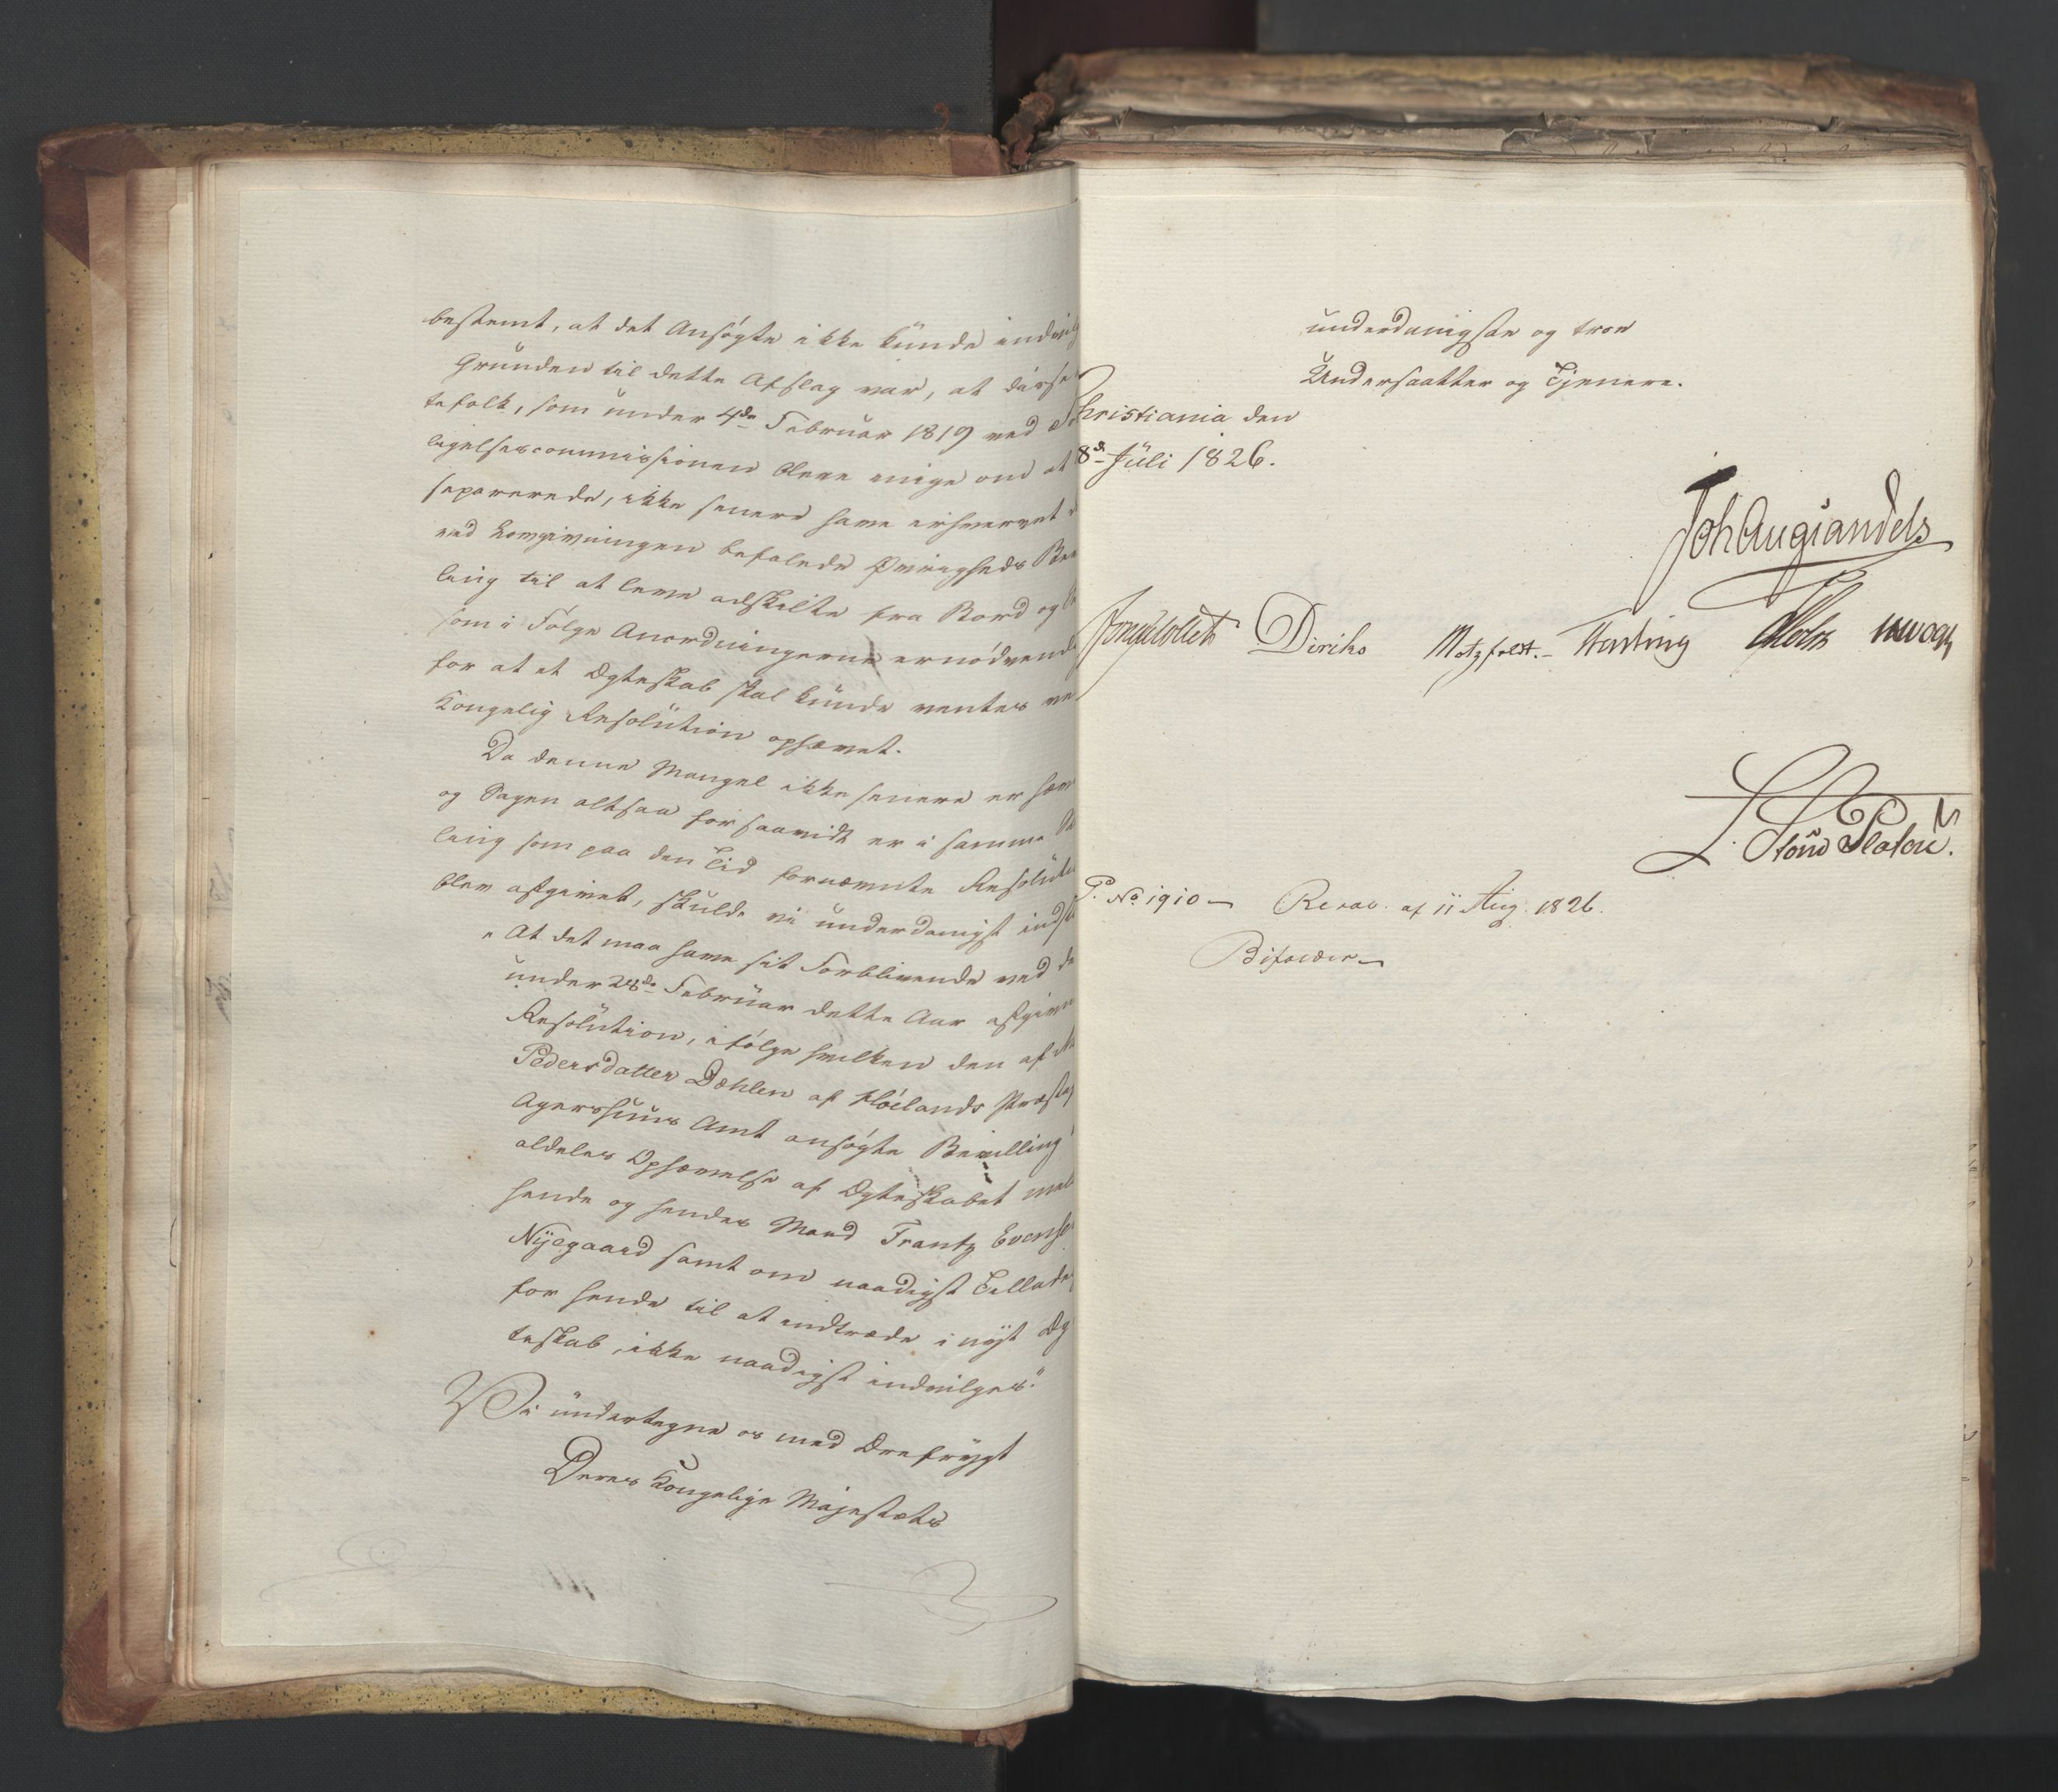 bestemt, at det Ansøgte ikke kunde indvilg
Grunden til dette Afslag var, at disse
tefolk, som under 4de Februar 1819 ved
ligelsescommissionen bleve enige om at
separerede, ikke senere have erhvervet
ved Lovgivningen befalede Øvrigheds Bevil
ling til at leve adskilte fra Bord og
som i Følge Anordningerne er nødvendig
for at et Ægteskab skal kunde ventes ved
Kongelig Resolution ophævet.
Da denne Mangel ikke senere er hæv
og Sagen altsaa forsaavidt er i samme Stil
ling som paa den Tid fornævnte Resolution
blev afgivet, skulde vi underdanigst indst
"At det maa have sit Forblivende ved de
under 28de Februar dette Aar afgivne
Resolution, ifølge hvilken den af
Pedersdatter Dæhlen af Høelands Præste
Agershuus Amt ansøgte Bevilling
aldeles Ophævelse af Ægteskabet mell
hende og hendes Mand Frantz Evense
Nijegaard samt om naadigst Tillade
for hende til at indtræde i nyt Æg
teskab, ikke naadigst indvilges."
Vi undertegne os med Ærefrygt
Deres Kongelige Majestæts
underdanigste og troe
Undersaatter og Tjenere.
Christiania den
8de Juli 1826.
Joh Aug Sandels
Jonas Collett Diriks Motzfeldt. Hasting Holst
L. v. Stoud Platou
P. No 1910 Resol. af 11 Aug. 1826.
Bifaldes